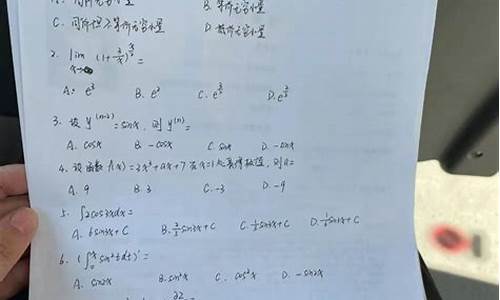 A. 同阶无穷小量 B. 等阶无穷小量
C. 同阶但不等阶无穷小量 D. 高阶无穷小量
2. lim (1+ )
A. e³ B. e² C. e D. e
3. 设 y⁽ⁿ⁻²⁾ = sinx, 则 y⁽ⁿ⁾ =
A. cosx B. -cosx C. sinx D. -sinx
4. 设函数 f(x) = 2x³+ax+7 在 x=1 处取得极值, 则 a=
A. 9 B. 3 C. -3 D. -9
5. ∫2cos3xdx =
A. 6sin3x+C B. 2/3 sin3x+C C. 1/3 sin3x+C D. 1/6 sin3x+C
6. (∫₀ˣ sin²tdt)' =
A. sin2x B. sin²x C. cos²x D. -sin2x